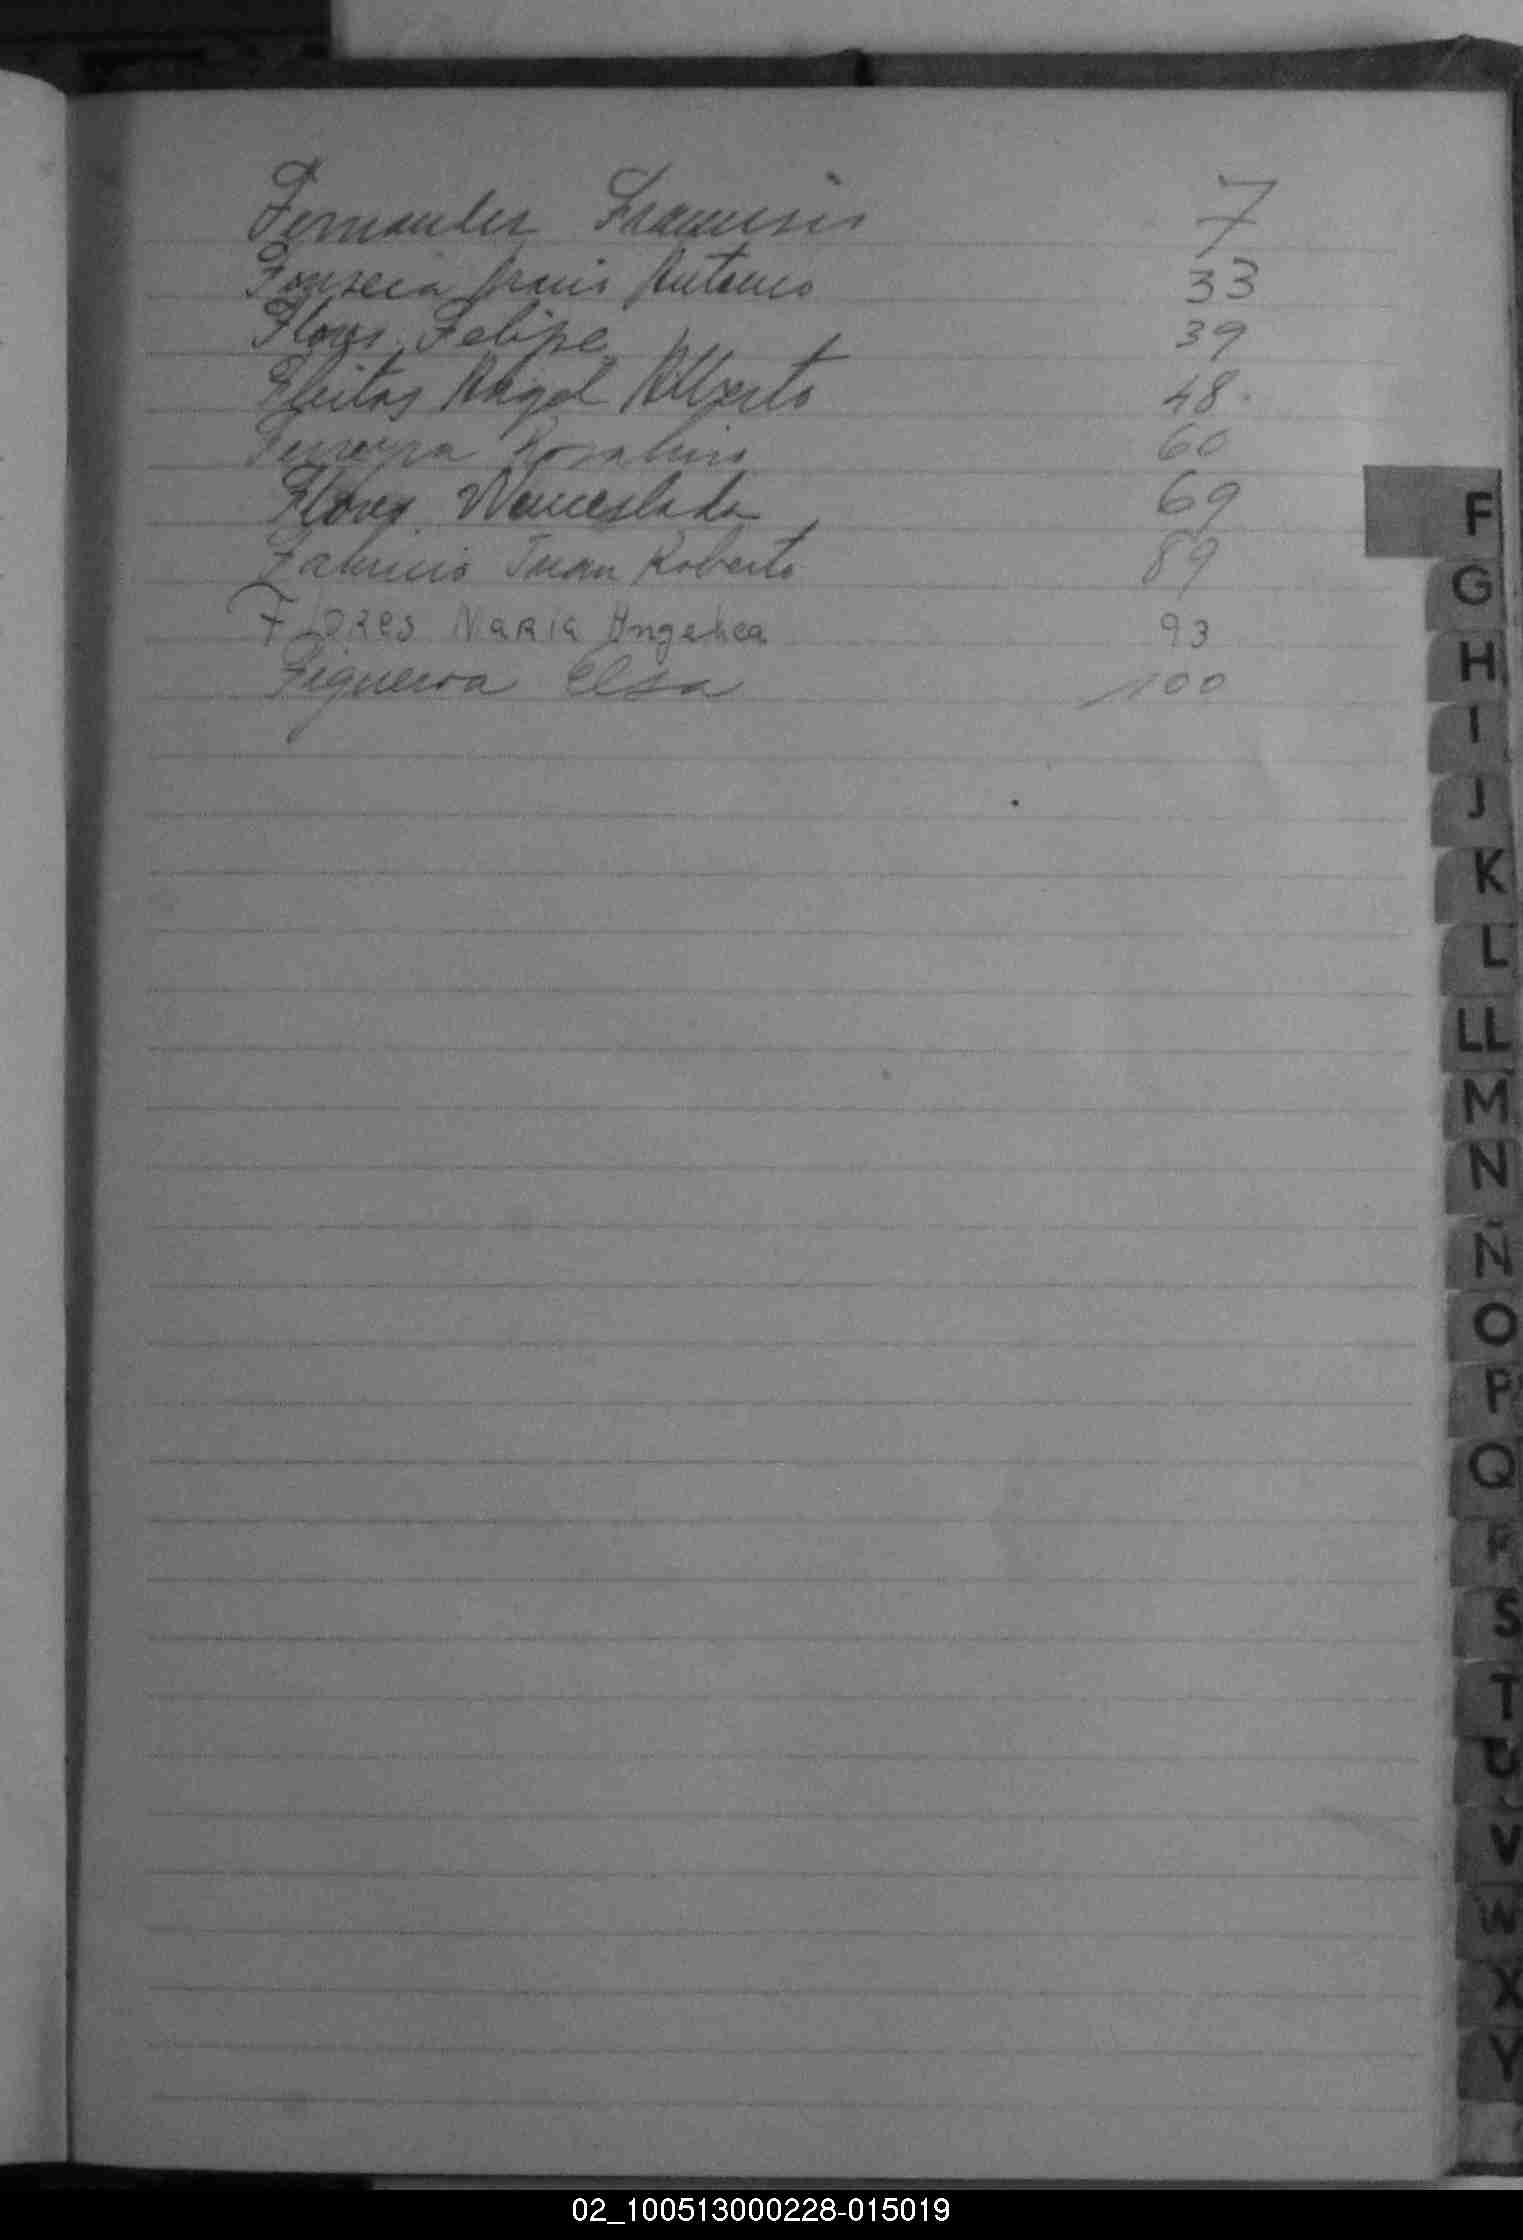 Fernandez Francisco 7
Fonseca Antonio 33
Flores Felipe 39
Fleitas Angel Alberto 48
Ferreyra Rosalino 60
Flores Wenceslada 69
Fabricio Juan Roberto 89
FLORES MARIA Angelica 93
Figueroa Elsa 100
F
G
H
I
J
K
L
LL
M
N
Ñ
O
P
Q
R
S
T
U
V
W
X
Y
02_100513000228-015019